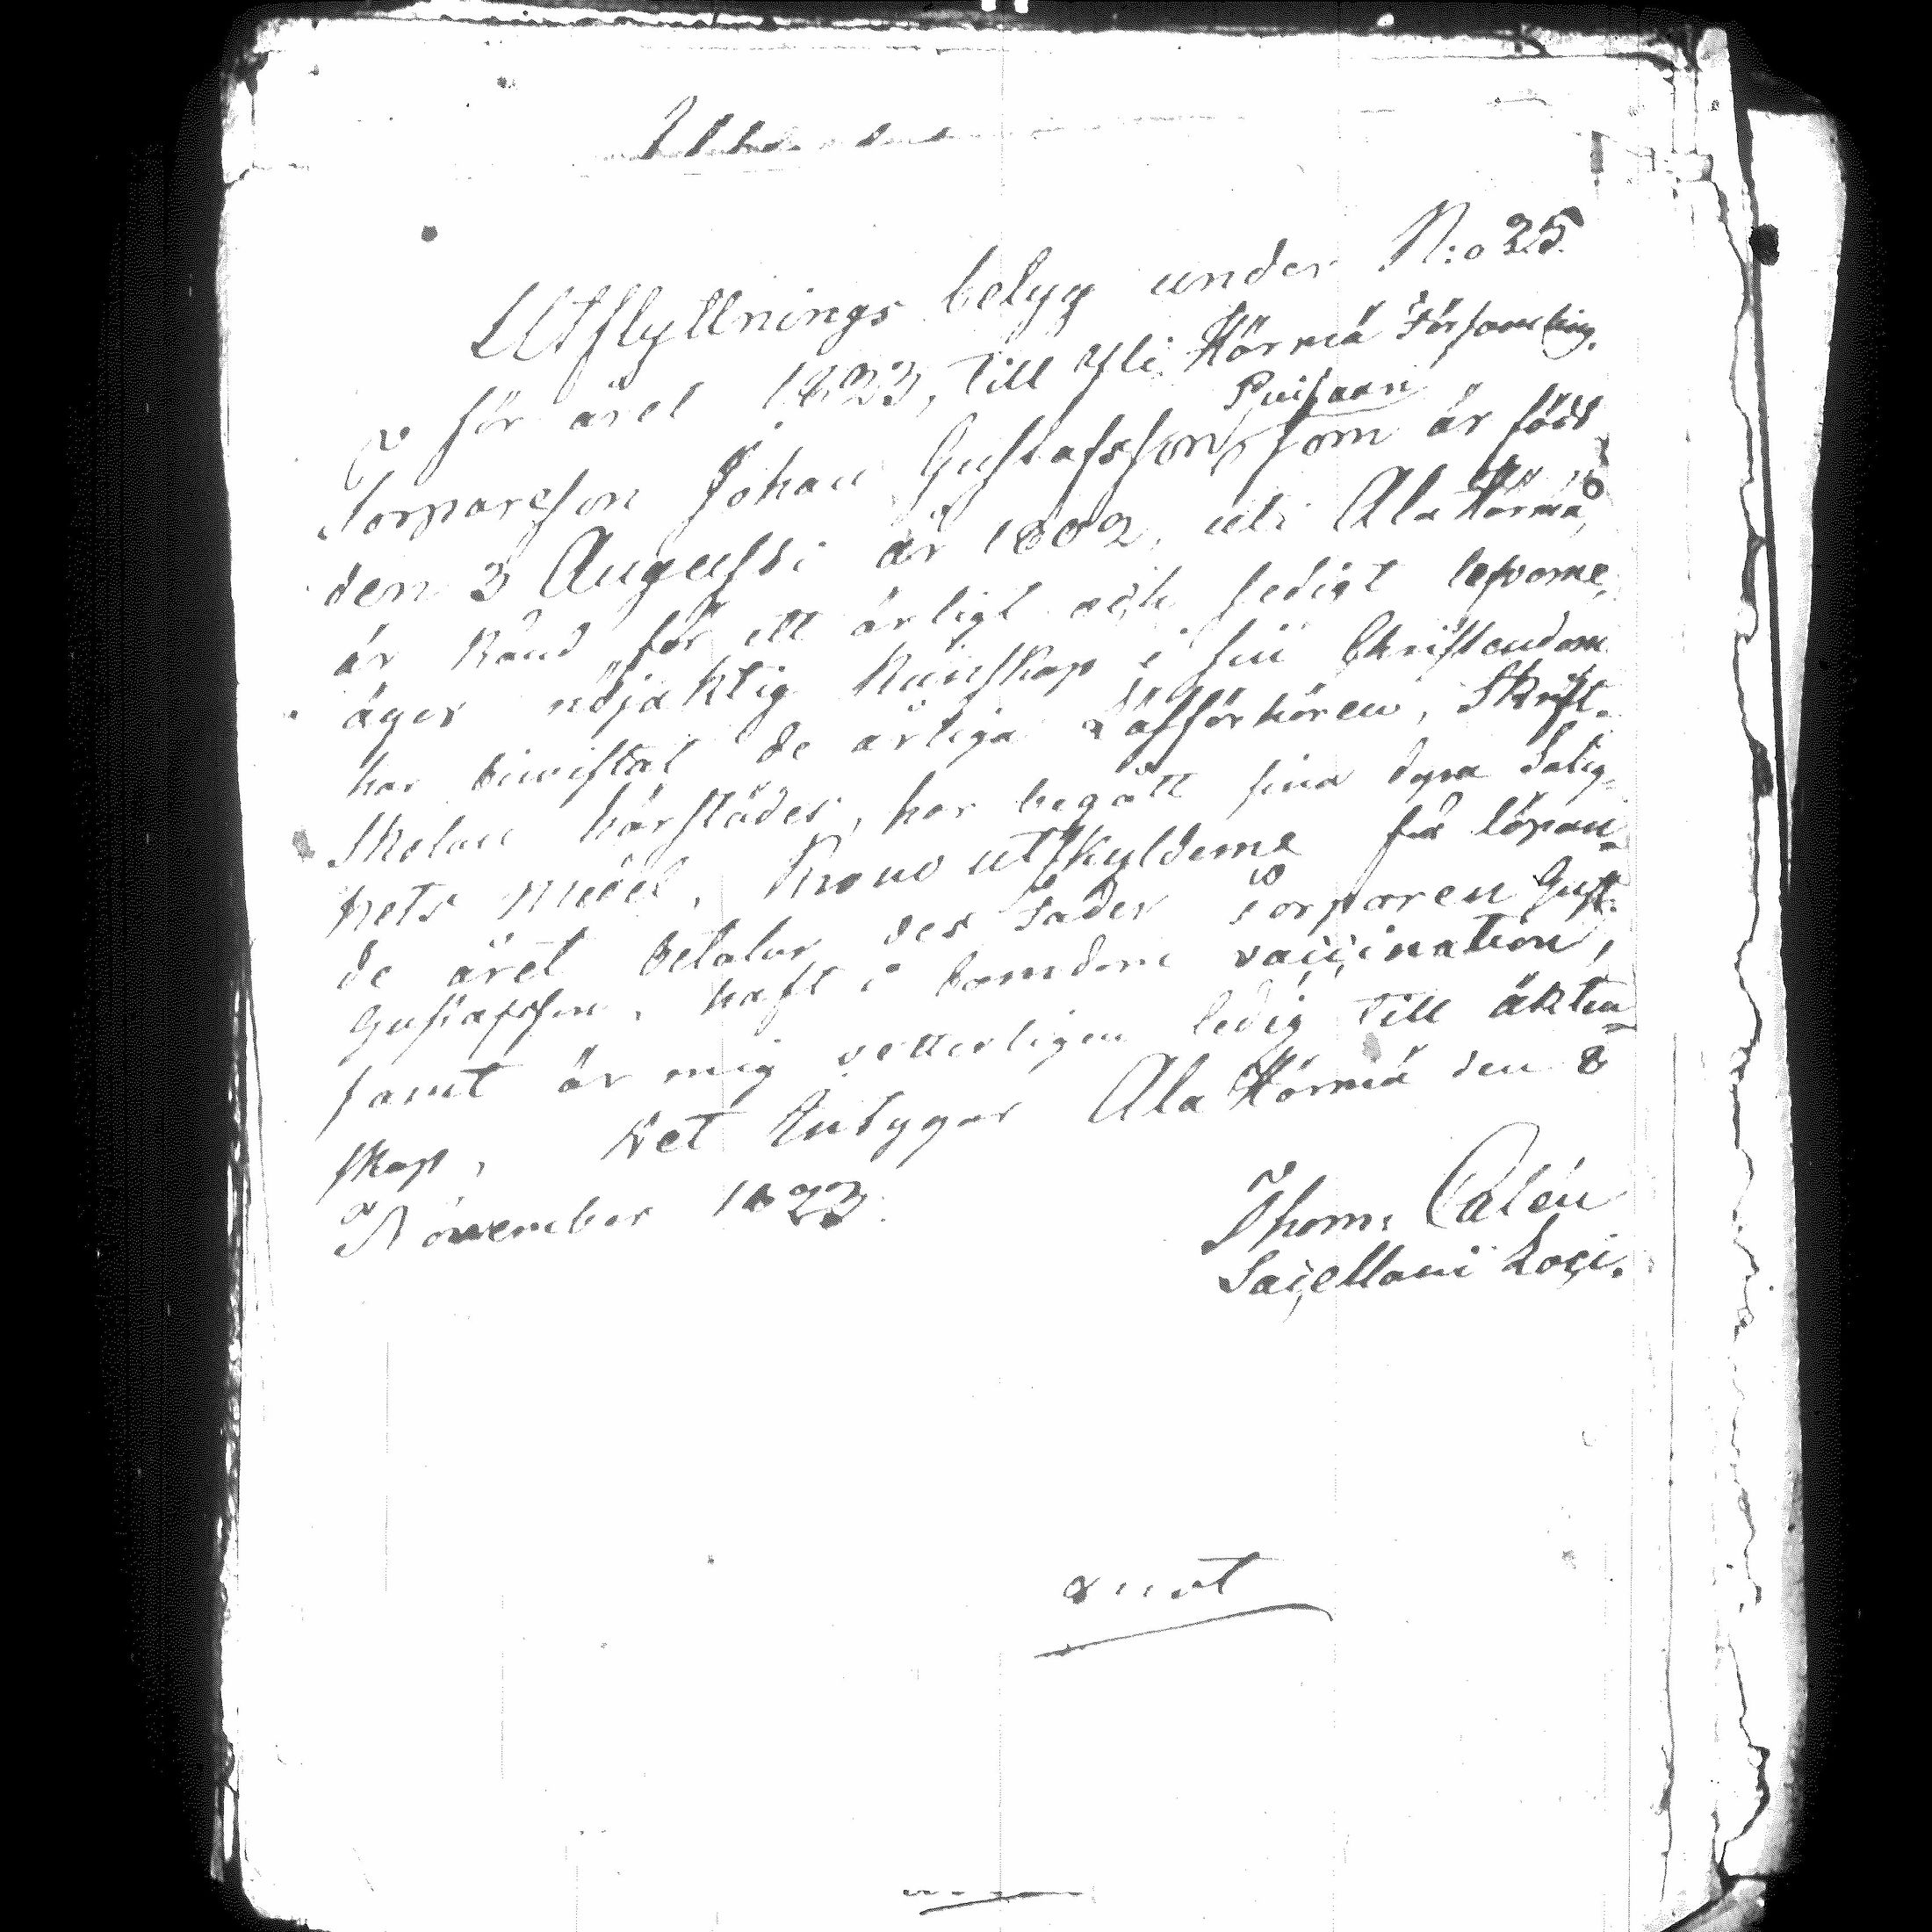 Utflyttnings betyg under N:o 25.
för året 1823, till Yli Härmä Församling.
Puisaari
Torpareson Johan Gustafsson, som är född
den 3 Augusti år 1802, uti Ala Härmä,
är känd för ett ärligt och sedigt lefverne,
äger nöjaktig kunskap i sin Christendom
har biwistat de årliga Läsförhören, Skrift-
skolan härstädes, har begått sina dyra Salig-
hets medel, Krono utskylderne för löpan-
de året betalar des Fader Torparen Gust:
Gustafsson, haft i barndom vaccination,
samt är mig vetterligen ledig till äkten-
skap, Det Intygar Ala Härmä den 8
November 1823.
Thom: Calén
Sacellani Loci.